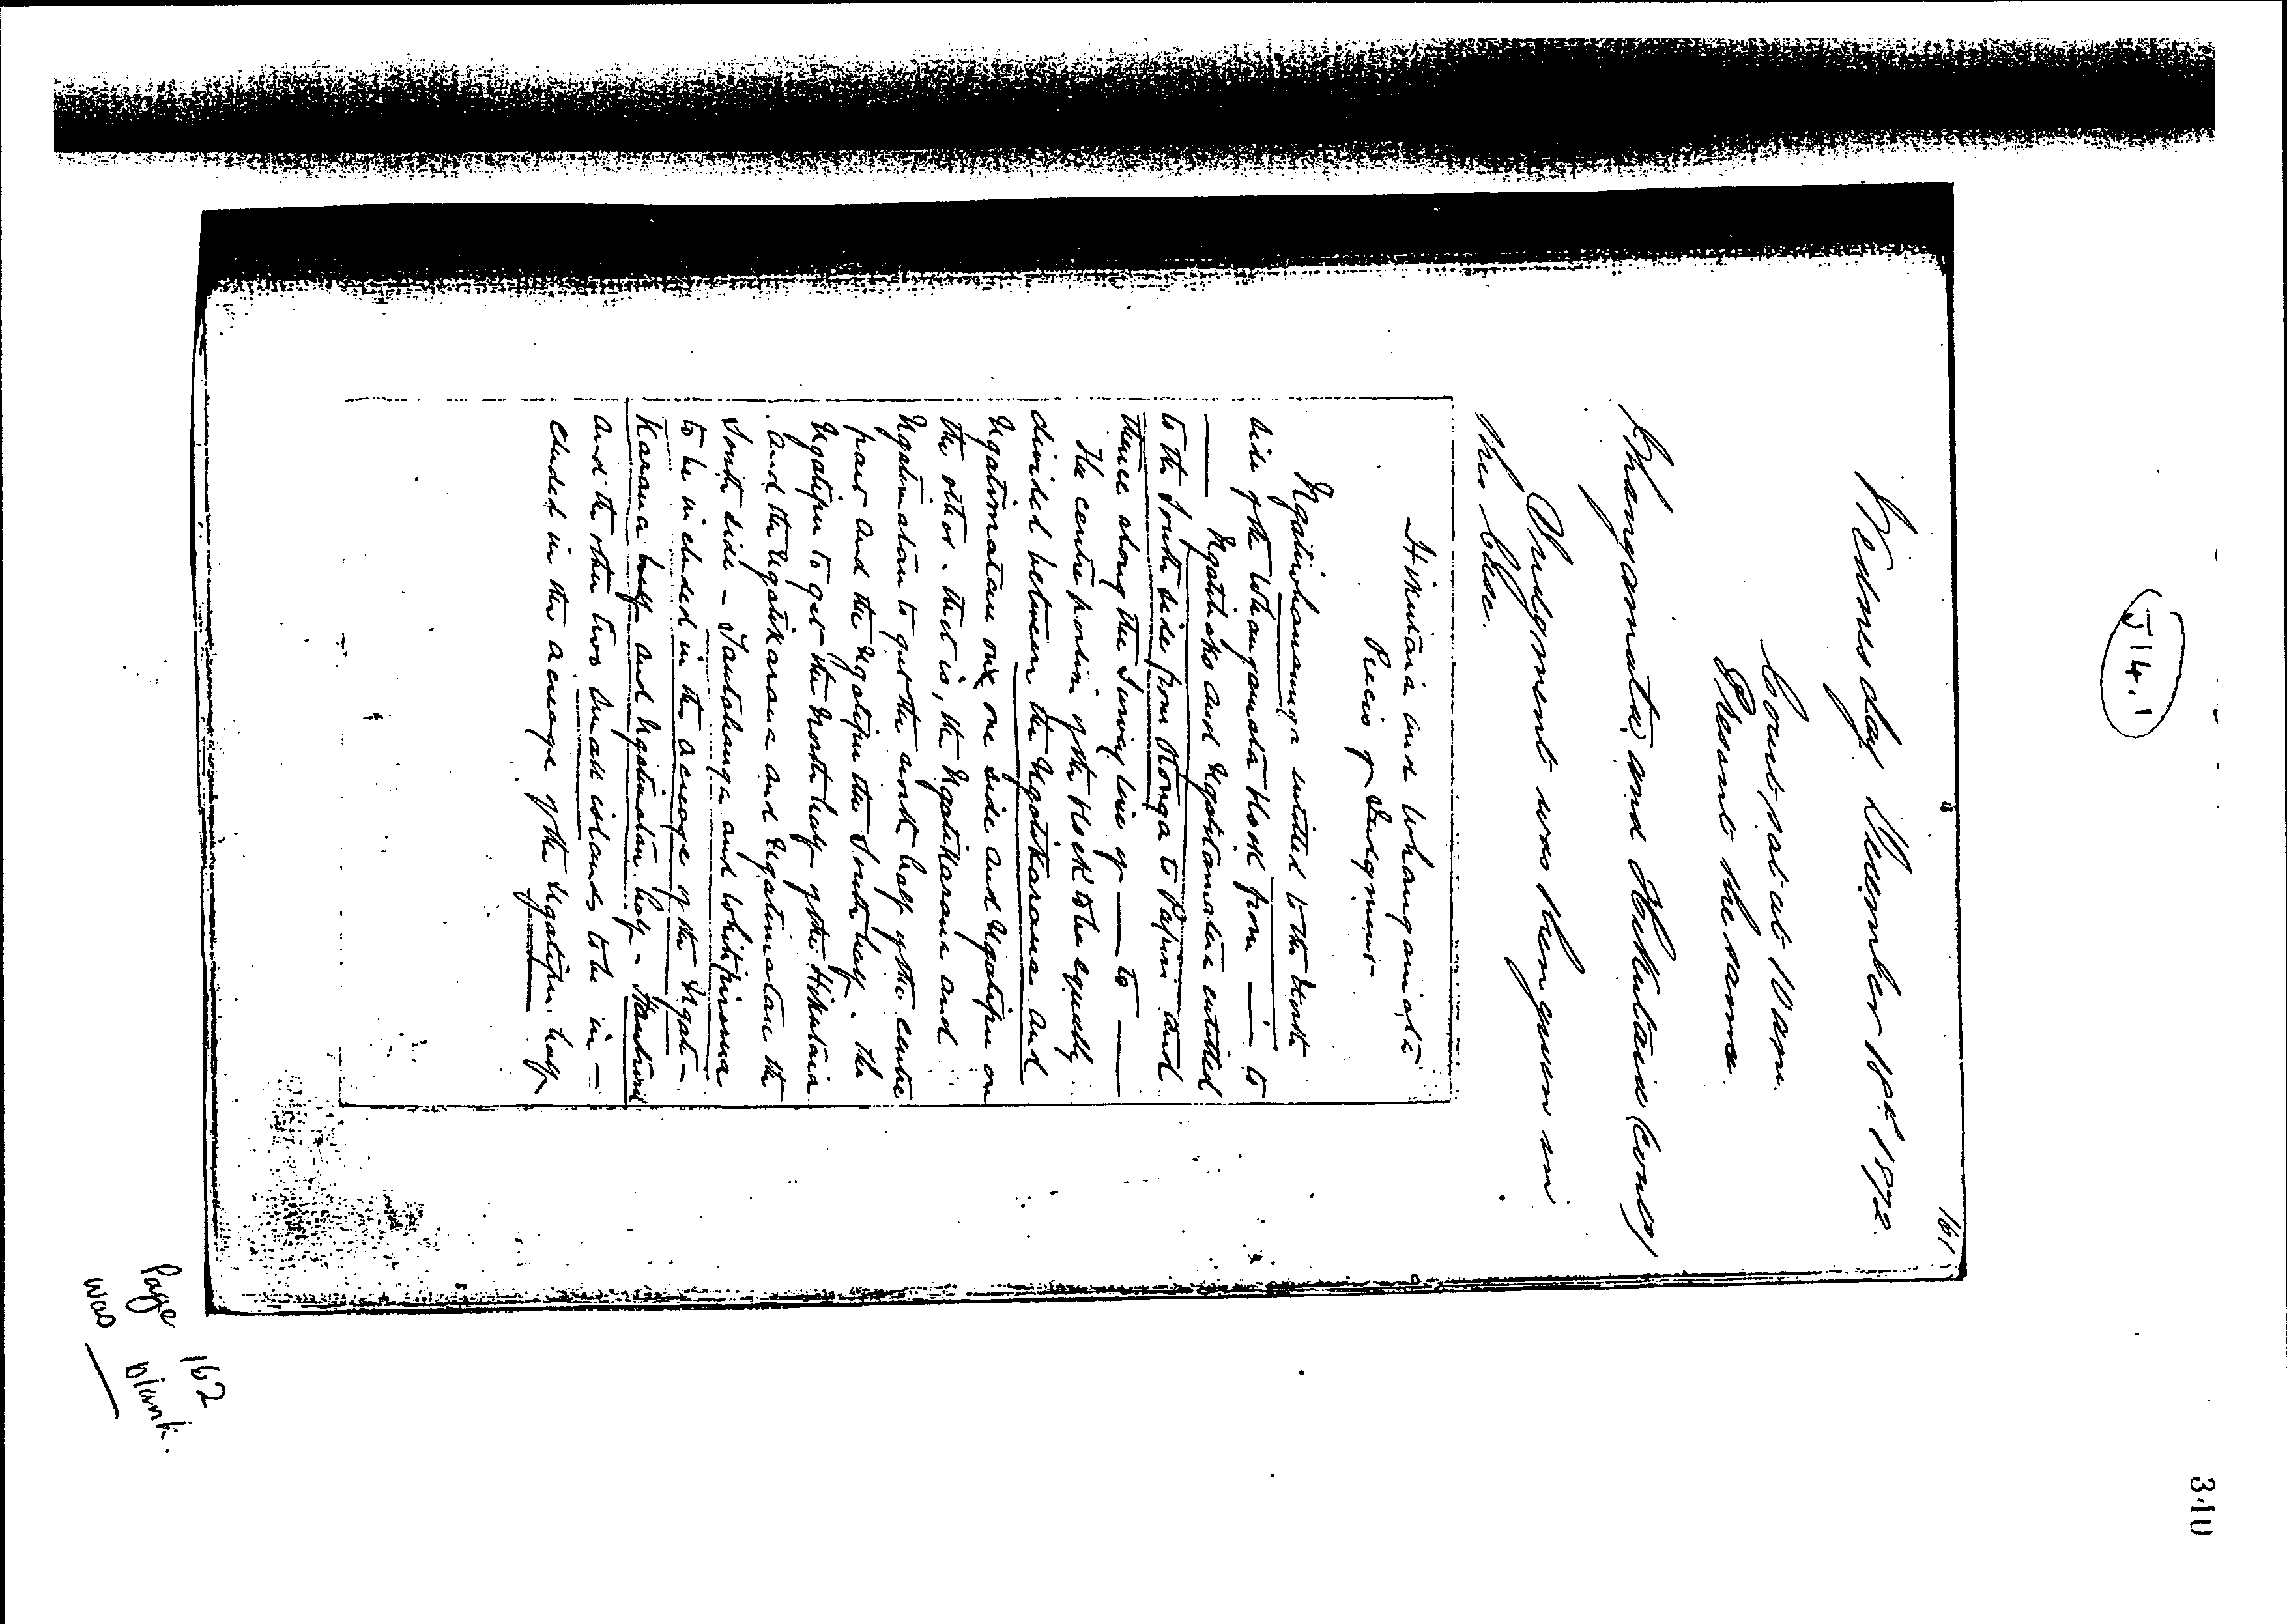 J 14.1
340
161
Wednesday December 18th 1872.
Court sat at 10 am.
Present the same.
Whangamata and Hikutaia (Contd)
Judgment was then given in
this Case.
Hikutaia and Whangamata
Precis of Judgment
Ngatiwhanaunga entitled to the North
side of the Whangamata Block from — to
—— Ngatihako and Ngatitamatera entitled
to the South side from to and
thence along the Survey line of —— to ——
The centre portion of the Block to be equally
divided between the Ngatikaraua and
Ngatimatau on one side and Ngatipu on
the other. that is, the Ngatikaraua and
Ngatimatau to get the north half of the centre
part and the Ngatipu the South half. The
Ngatipu to get the North half of the Hikutaia
and the Ngatikaraua and Ngatimatau the
South side - and Whitipirorua
to be included in the acreage of the Ngati-
karaua half and Ngatimatau half -
and the other two small islands to be in-
cluded in the acreage of the Ngatipu half
Page 162
was blank.